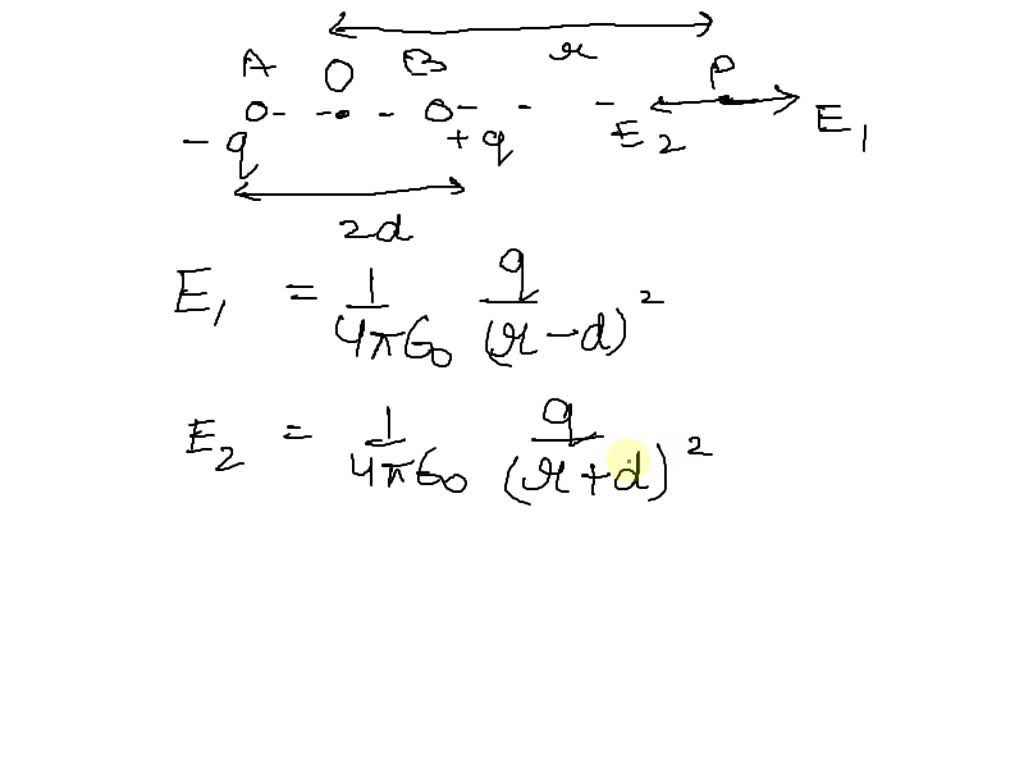 r
A O B P
-q +q E₂ E₁
2d
E₁ = 1/4πϵ₀ q/(r-d)²
E₂ = 1/4πϵ₀ q/(r+d)²